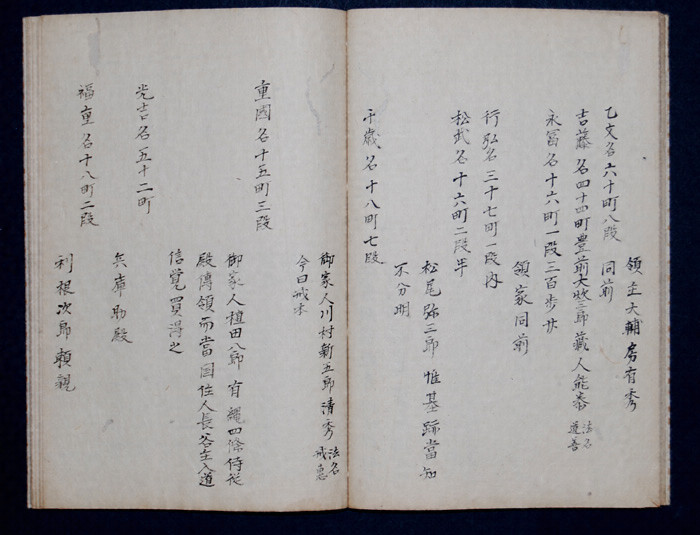 領主大輔房有秀
乙文名六十町八段 同前
吉藤名四十四町豊前大炊三郎蔵人能泰 法名道善
永富名十六町一段三百歩廿
領家同前
行弘名三十七町一段内
松尾弥三郎惟基跡當知
松武名十六町二段半
不分明
千歳名十八町七段
御家人川村新五郎清秀 法名戒意
今曰誡本
重國名十五町三段
御家人稙田八郎有綱四條侍従
殿傳領而當国住人長谷主入道
信覚買得之
光吉名五十二町
兵庫助殿
福重名十八町二段
利根次郎頼親